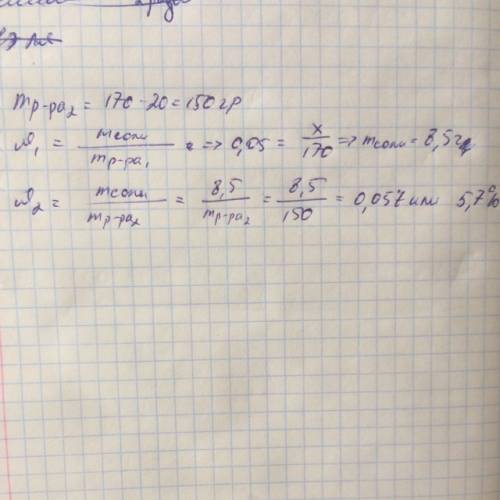 mр-ра₂ = 170 - 20 = 150 гр
ω₁ = mсоли / mр-ра₁ => 0,05 = x / 170 => mсоли = 8,5 г
ω₂ = mсоли / mр-ра₂ = 8,5 / mр-ра₂ = 8,5 / 150 = 0,057 или 5,7%